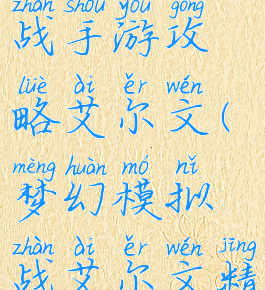 zhàn shǒu yóu gōng
战手游攻
lüè ài ěr wén
略艾尔文(
mèng huàn mó nǐ
梦幻模拟
zhàn ài ěr wén jīng
战艾尔文精